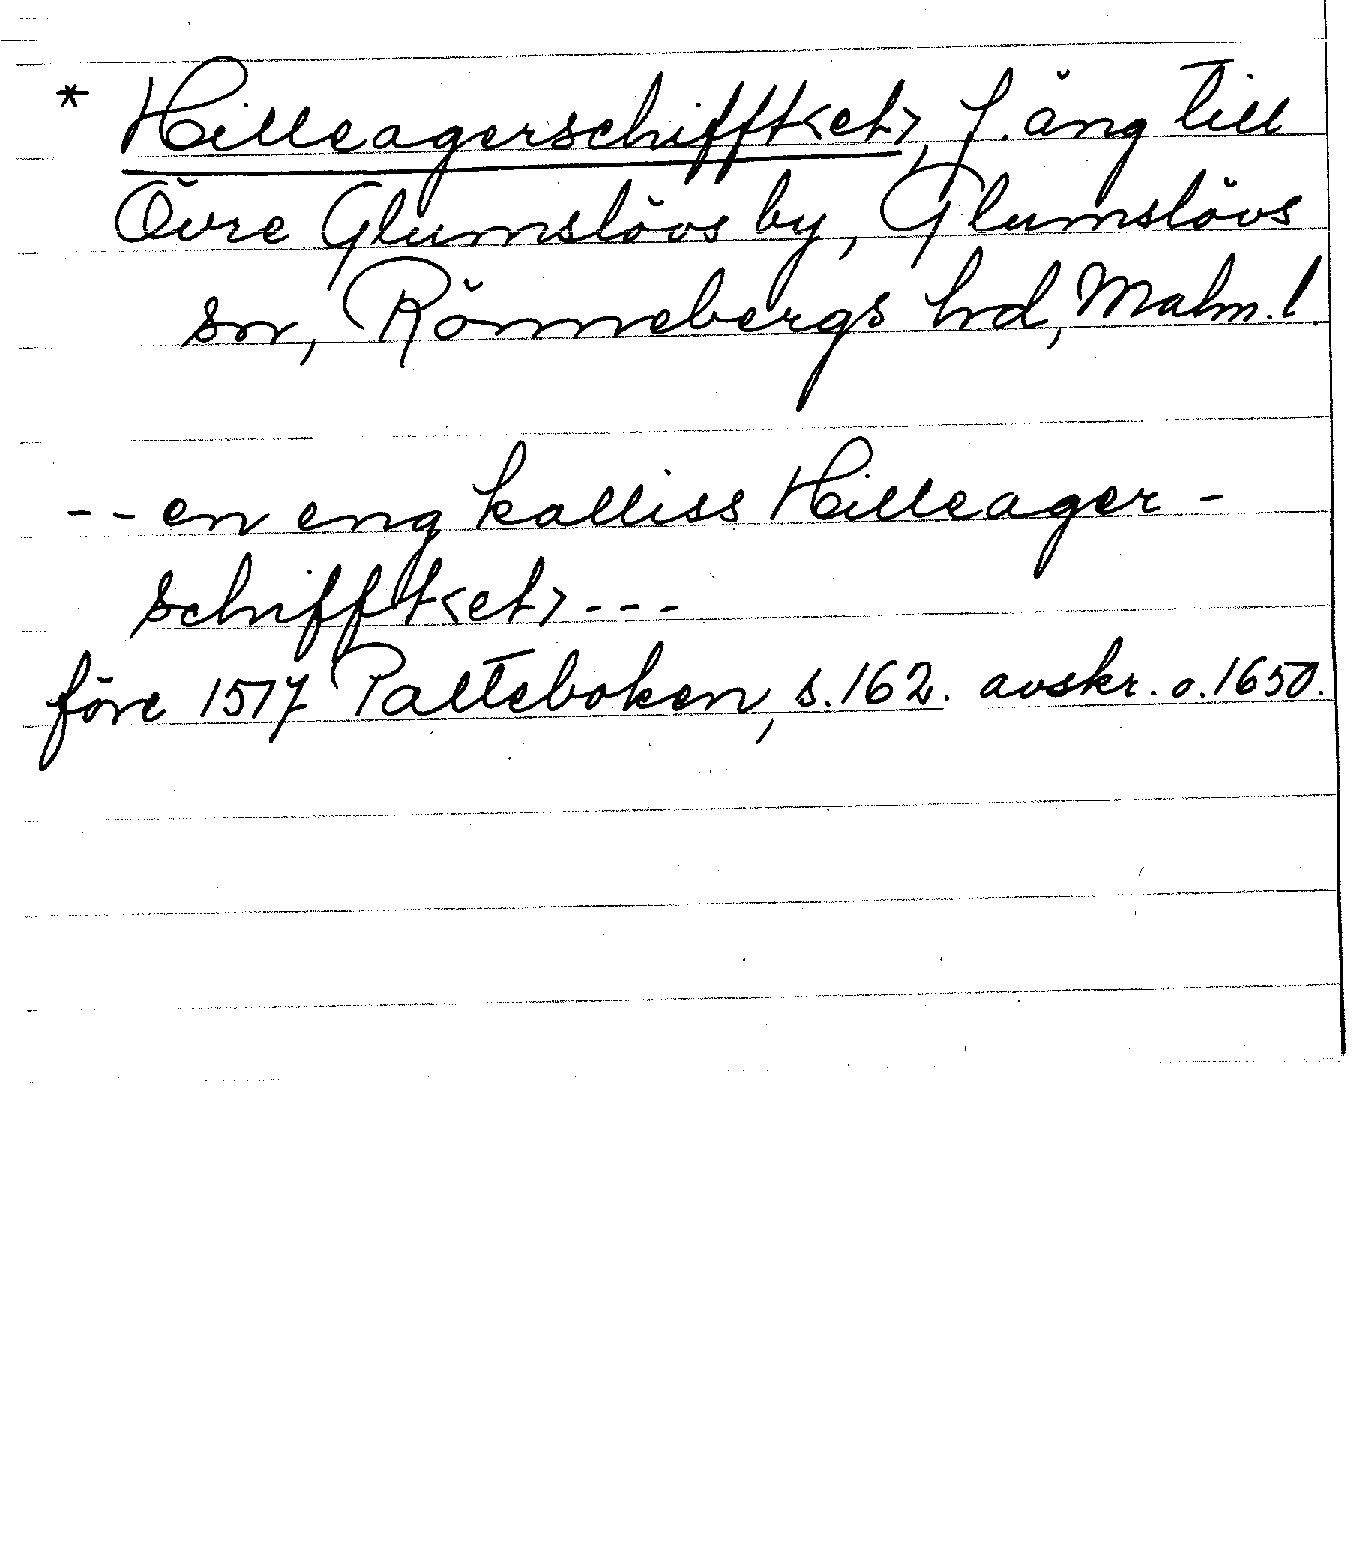 * Hilleagerschifft<et>, f. äng till
Övre Glumslövs by, Glumslövs
sn, Rönnebergs hd, Malm. l.
-- en eng kalliss Hilleager-
schifft<et> ---
före 1517 Palteboken, s. 162. avskr. o. 1650.